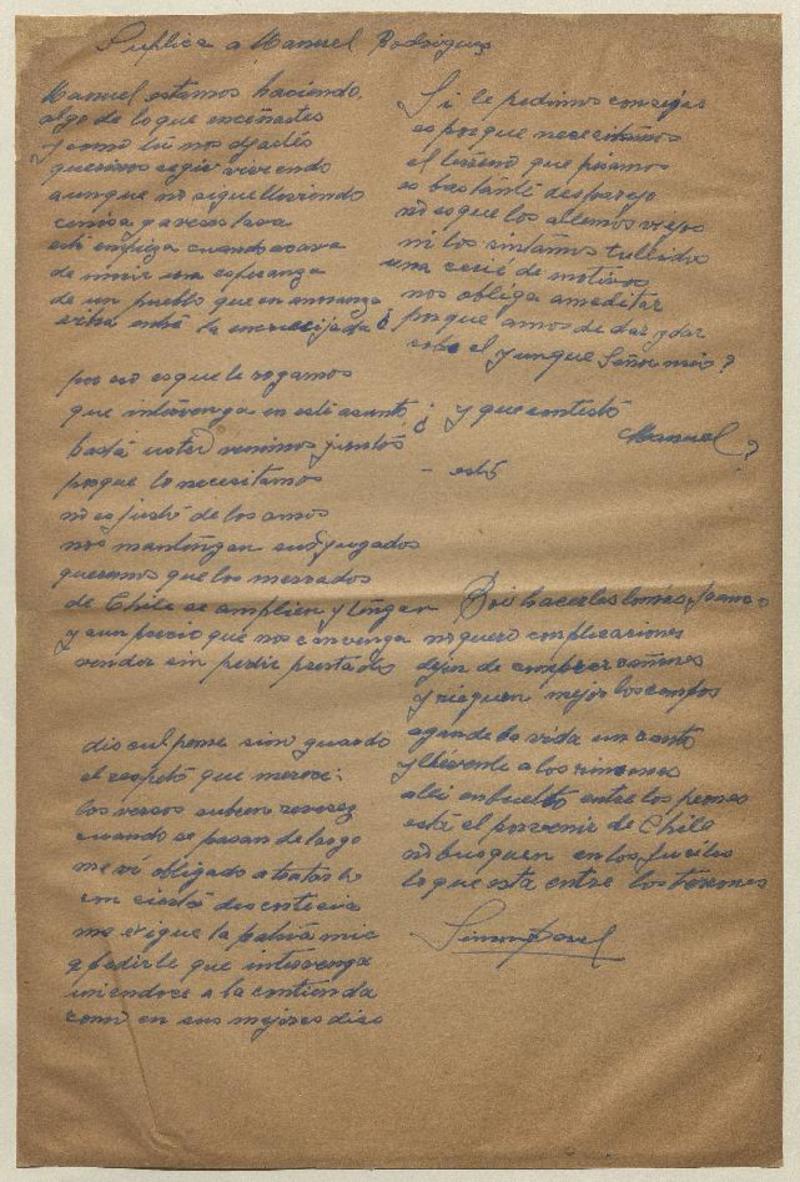 Suplica a Manuel Rodriguez
Manuel estamos haciendo,
algo de lo que enceñastes
y como tú nos dejastes
queremos segir viviendo
aunque no sigue lloviendo
ceniza y aveses lava
esto empieza cuando acava
de morir una esperanza
de un pueblo que en
entre la encrucijada
por eso es que le rogamos
que intervenga en este asunto
hasta usted venimos juntos
porque lo necesitamos
no es justo de los amos
nos mantengan sudyugados
queremos que los mercados
de Chile se amplien y tengan
y aun precio que nos convenga
vender sin pedir prestado
disculpeme sino guardo
el respeto que merece:
los versos suben
cuando se pasan de largo
me vi obligado a tratarlo
con cierta descortecia
me exigue la patria mia
a pedirle que intervenga
uniendoce a la contienda
como en sus mejores dias
Si le pedimos consejos
es porque necesitamos
el terreno que pisamos
es bastante desparejo
no es que los allemos viejos
ni los sintamos tullidos
una cerie de motivos
nos obliga a meditar
¿ porque amos de dar y dar
sobre el yunque Señor mio?
¿ y que contestó
Manuel?
- esto
Boi hacerles lomas,
no quero complicaciones
dejen de comprar cañones
y rieguen mejor los campos
agan de la vida un canto
y llévenlo a los rincones
alli enbuelto entre los peones
está el porvenir de Chile
no busquen en los fuciles
lo que esta entre los terrones